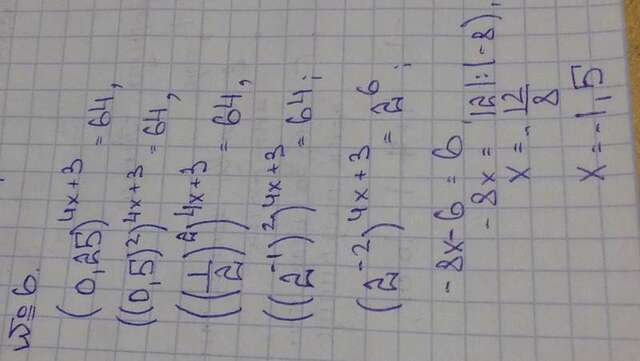 №6.
(0,25)^{4x+3} = 64,
((0,5)^2)^{4x+3} = 64,
((1/2)^2)^{4x+3} = 64,
((2^{-1})^2)^{4x+3} = 64,
(2^{-2})^{4x+3} = 2^6,
-8x-6 = 6
-8x = 12|:(-8),
x = -12/8
x = -1,5